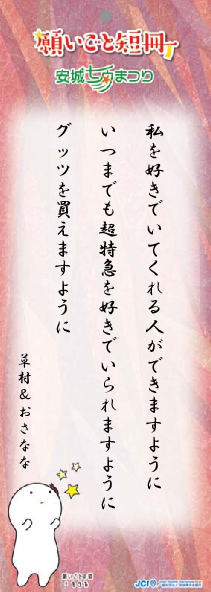 願いごと短冊
安城七夕まつり
私を好きでいてくれる人ができますように
いつまでも超特急を好きでいられますように
グッツを買えますように
草村&おさなな
願いごと短冊
JCI